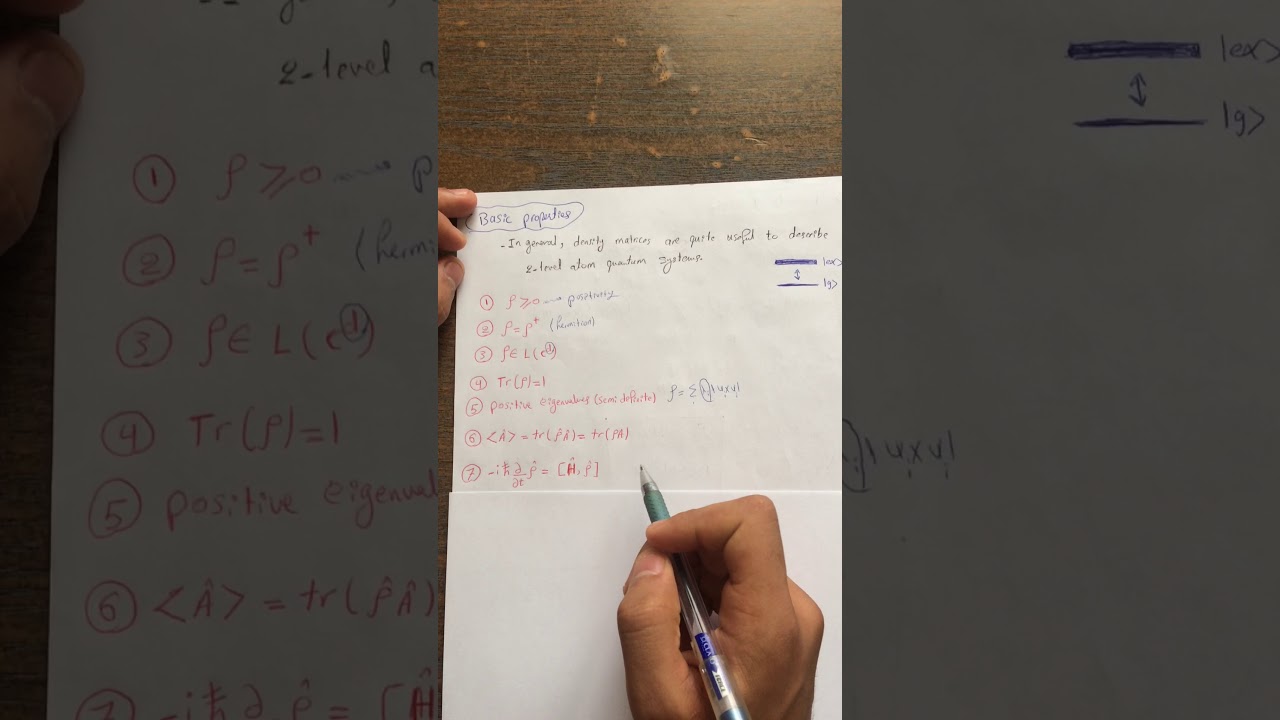 Basic properties
- In general, density matrices are quite useful to describe
2-level atom quantum systems.
|ex>
|g>
① ρ ⩾ 0 → positivity
② ρ = ρ⁺ (hermition)
③ ρ ∈ L(c^d)
④ Tr(ρ) = 1
⑤ positive eigenvalues (semi definite) ρ = Σ
⑥ <Â> = tr(ρ̂Â) = tr(ρA)
⑦ -iħ ∂/∂t ρ̂ = [Ĥ, ρ̂]